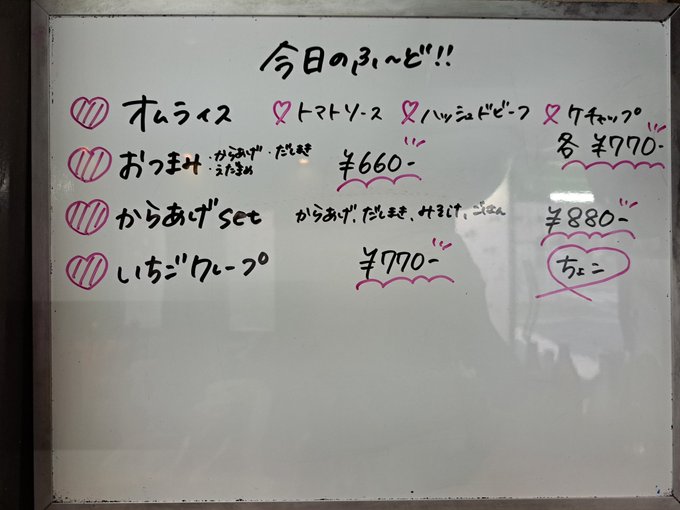 今日のふ〜ど!!
オムライス ♡トマトソース ♡ハッシュドビーフ ♡ケチャップ
各 ¥770-
おつまみ ・からあげ ・だしまき
・えだまめ
¥660-
からあげset からあげ、だしまき、みそしる、ごはん ¥880-
いちごクレープ ¥770- ちょこ